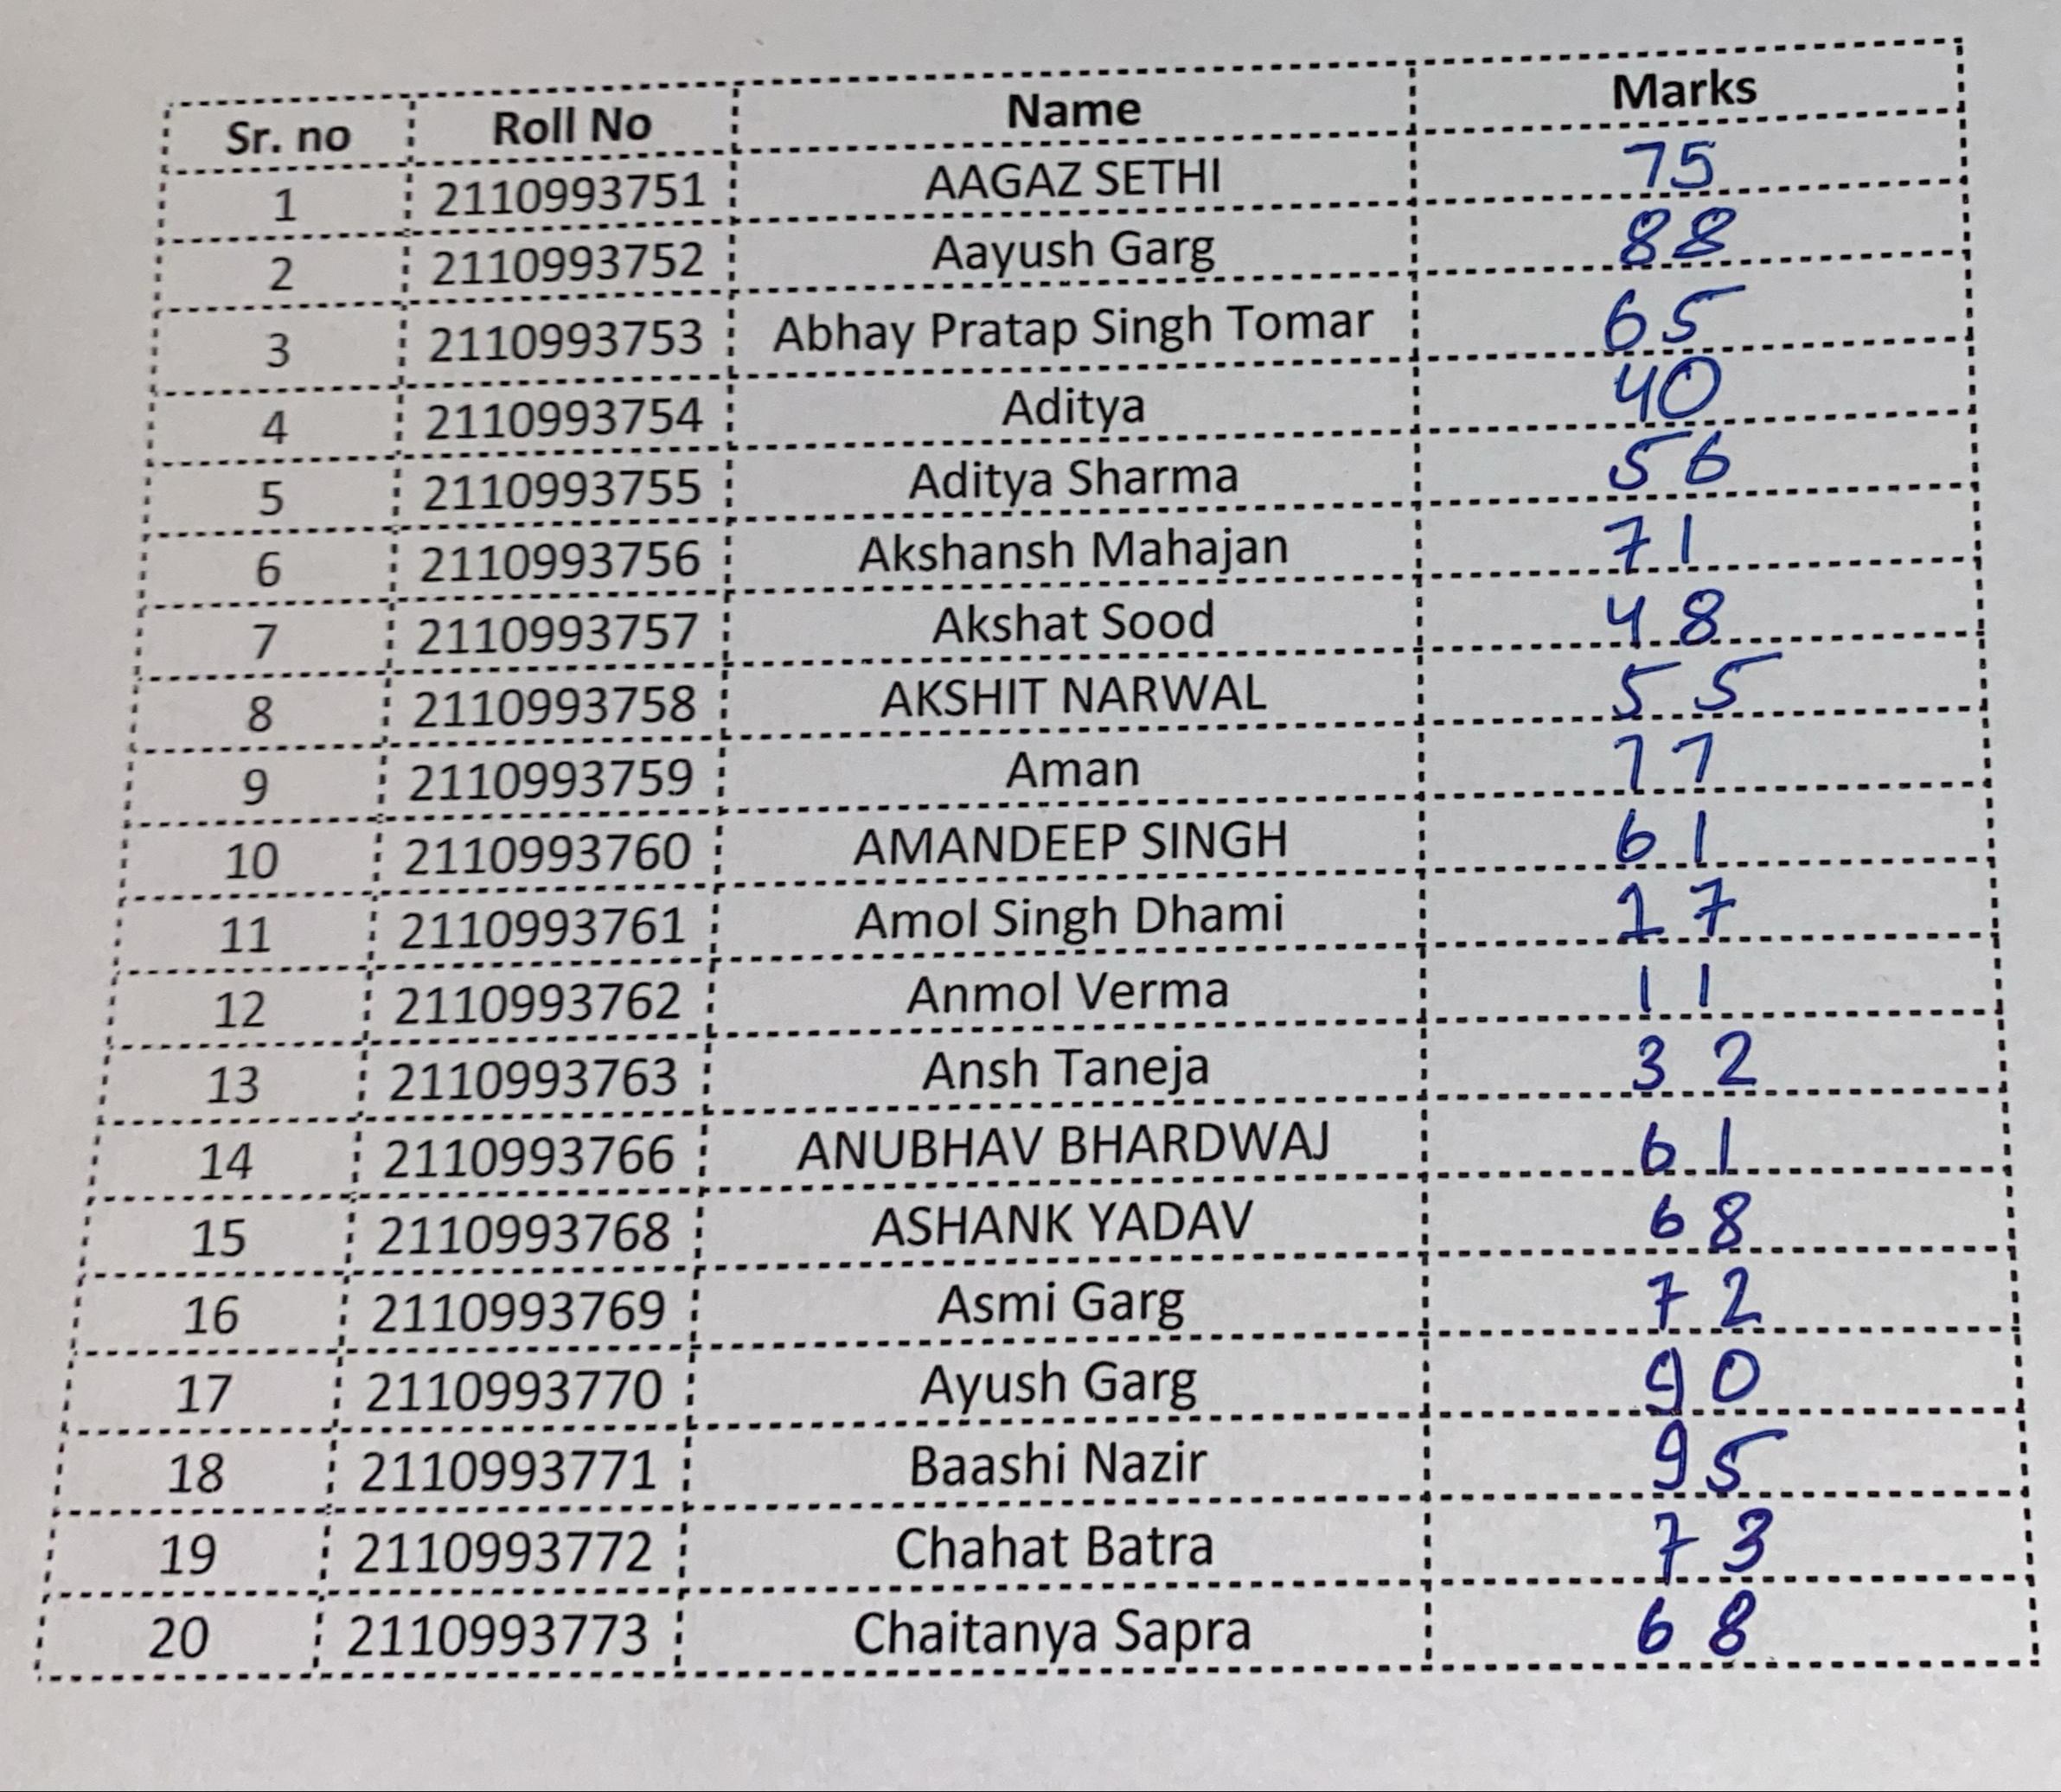 Sr. no Roll No Name Marks
1 2110993751 AAGAZ SETHI 75
2 2110993752 Aayush Garg 88
3 2110993753 Abhay Pratap Singh Tomar 65
4 2110993754 Aditya 40
5 2110993755 Aditya Sharma 56
6 2110993756 Akshansh Mahajan 71
7 2110993757 Akshat Sood 48
8 2110993758 AKSHIT NARWAL 55
9 2110993759 Aman 77
10 2110993760 AMANDEEP SINGH 61
11 2110993761 Amol Singh Dhami 17
12 2110993762 Anmol Verma 11
13 2110993763 Ansh Taneja 32
14 2110993766 ANUBHAV BHARDWAJ 61
15 2110993768 ASHANK YADAV 68
16 2110993769 Asmi Garg 72
17 2110993770 Ayush Garg 90
18 2110993771 Baashi Nazir 95
19 2110993772 Chahat Batra 73
20 2110993773 Chaitanya Sapra 68